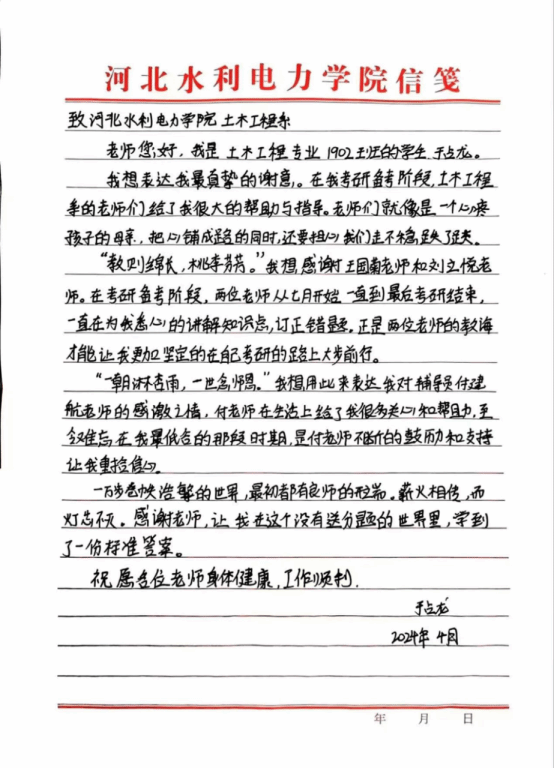 河北水利电力学院信笺
致河北水利电力学院土木工程系
老师您好，我是土木工程专业1902班的学生于占龙。
我想表达我最真挚的谢意。在我考研备考阶段，土木工程
系的老师们给了我很大的帮助与指导。老师们就像是一个心疼
孩子的母亲，把心铺成路的同时，还要担心我们走不稳，跌了跤。
“教则绵长，桃李芬芳。”我想感谢王国菊老师和刘立悦老
师。在考研备考阶段，两位老师从七月开始一直到最后考研结束，
一直在为我悉心的讲解知识点，订正错题。正是两位老师的教诲
才能让我更加坚定的在自己考研的路上大步前行。
“一朝沐杏雨，一世念师恩。”我想用此来表达我对辅导员付建
航老师的感激之情，付老师在生活上给了我很多关心和帮助，至
今难忘在我最低谷的那段时期，是付老师不断的鼓励和支持
让我重拾信心。
一万步卷帙浩繁的世界，最初都有良师的形容。薪火相传，而
灯芯不灭。感谢老师，让我在这个没有送分题的世界里，学到
了一份标准答案。
祝愿各位老师身体健康，工作顺利．
于占龙
2024年4月
年 月 日